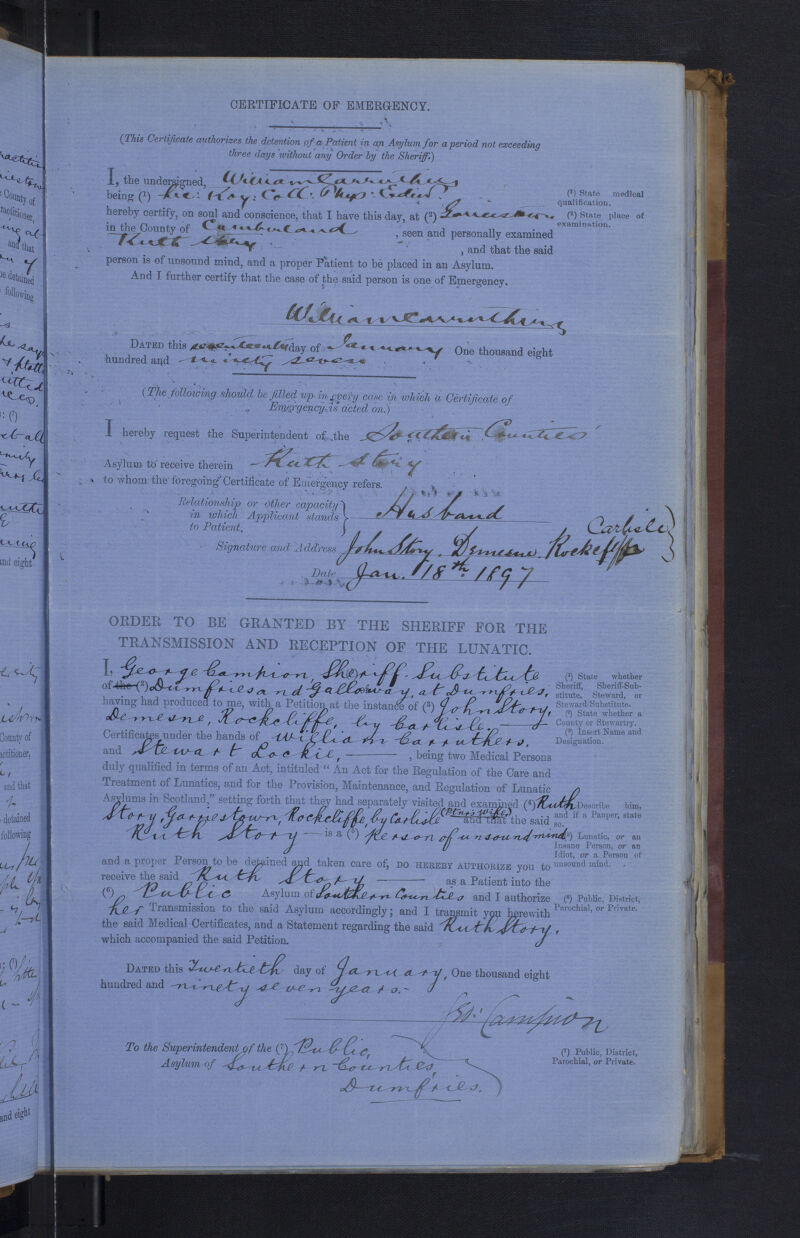 CERTIFICATE OF EMERGENCY.
(This Certificate authorizes the detention of a Patient in an Asylum for a period not exceeding
three days without any Order by the Sheriff.)
I, the undersigned, William Carruthers
being (¹) Lic: Roy: Coll: Phys: Edin:
(¹) State medical
qualification.
hereby certify, on soul and conscience, that I have this day, at (²) Garrestown
(²) State place of
examination.
in the County of Cumberland , seen and personally examined
Ruth Story , and that the said
person is of unsound mind, and a proper Patient to be placed in an Asylum.
And I further certify that the case of the said person is one of Emergency.
William Carruthers
DATED this seventeenth day of January One thousand eight
hundred and ninety seven
(The following should be filled up in every case in which a Certificate of
Emergency is acted on.)
I hereby request the Superintendent of the Southern Counties
Asylum to receive therein Ruth Story
to whom the foregoing Certificate of Emergency refers.
Relationship or other capacity
in which Applicant stands
to Patient, } Husband
Signature and Address John Story. Demesne. Rockcliffe Carlisle }
Date Jan. 18th 1897
ORDER TO BE GRANTED BY THE SHERIFF FOR THE
TRANSMISSION AND RECEPTION OF THE LUNATIC.
I, George Campion, Sheriff-Substitute
of the (²) Dumfries and Galloway, at Dumfries,
having had produced to me, with a Petition at the instance of (³) John Story,
Demesne, Rockcliffe, by Carlisle
Certificates under the hands of William Carruthers,
and Stewart Lockie, , being two Medical Persons
(¹) State whether
Sheriff, Sheriff-Sub-
stitute, Steward, or
Steward-Substitute.
(²) State whether a
County or Stewartry.
(³) Insert Name and
Designation.
duly qualified in terms of an Act, intituled "An Act for the Regulation of the Care and
Treatment of Lunatics, and for the Provision, Maintenance, and Regulation of Lunatic
Asylums in Scotland," setting forth that they had separately visited and examined (⁴) Ruth
Story, Garrestown, Rockcliffe, by Carlisle and that the said
Ruth Story is a (⁵) Person of unsound mind
Describe him,
and if a Pauper, state
so.
(⁵) Lunatic, or an
Insane Person, or an
Idiot, or a Person of
unsound mind.
and a proper Person to be detained and taken care of, DO HEREBY AUTHORIZE you to
receive the said Ruth Story as a Patient into the
(⁶) Public Asylum of Southern Counties and I authorize
her Transmission to the said Asylum accordingly; and I transmit you herewith
(⁶) Public, District,
Parochial, or Private.
the said Medical Certificates, and a Statement regarding the said Ruth Story,
which accompanied the said Petition.
DATED this Twentieth day of January, One thousand eight
hundred and ninety seven years.-
Geo: Campion
To the Superintendent of the (⁷) Public,
Asylum of Southern Counties,
Dumfries.
(⁷) Public, District,
Parochial, or Private.